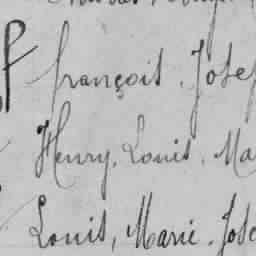 françois, Josep
Henry, Louis, Ma
Louis, Marie, Jose